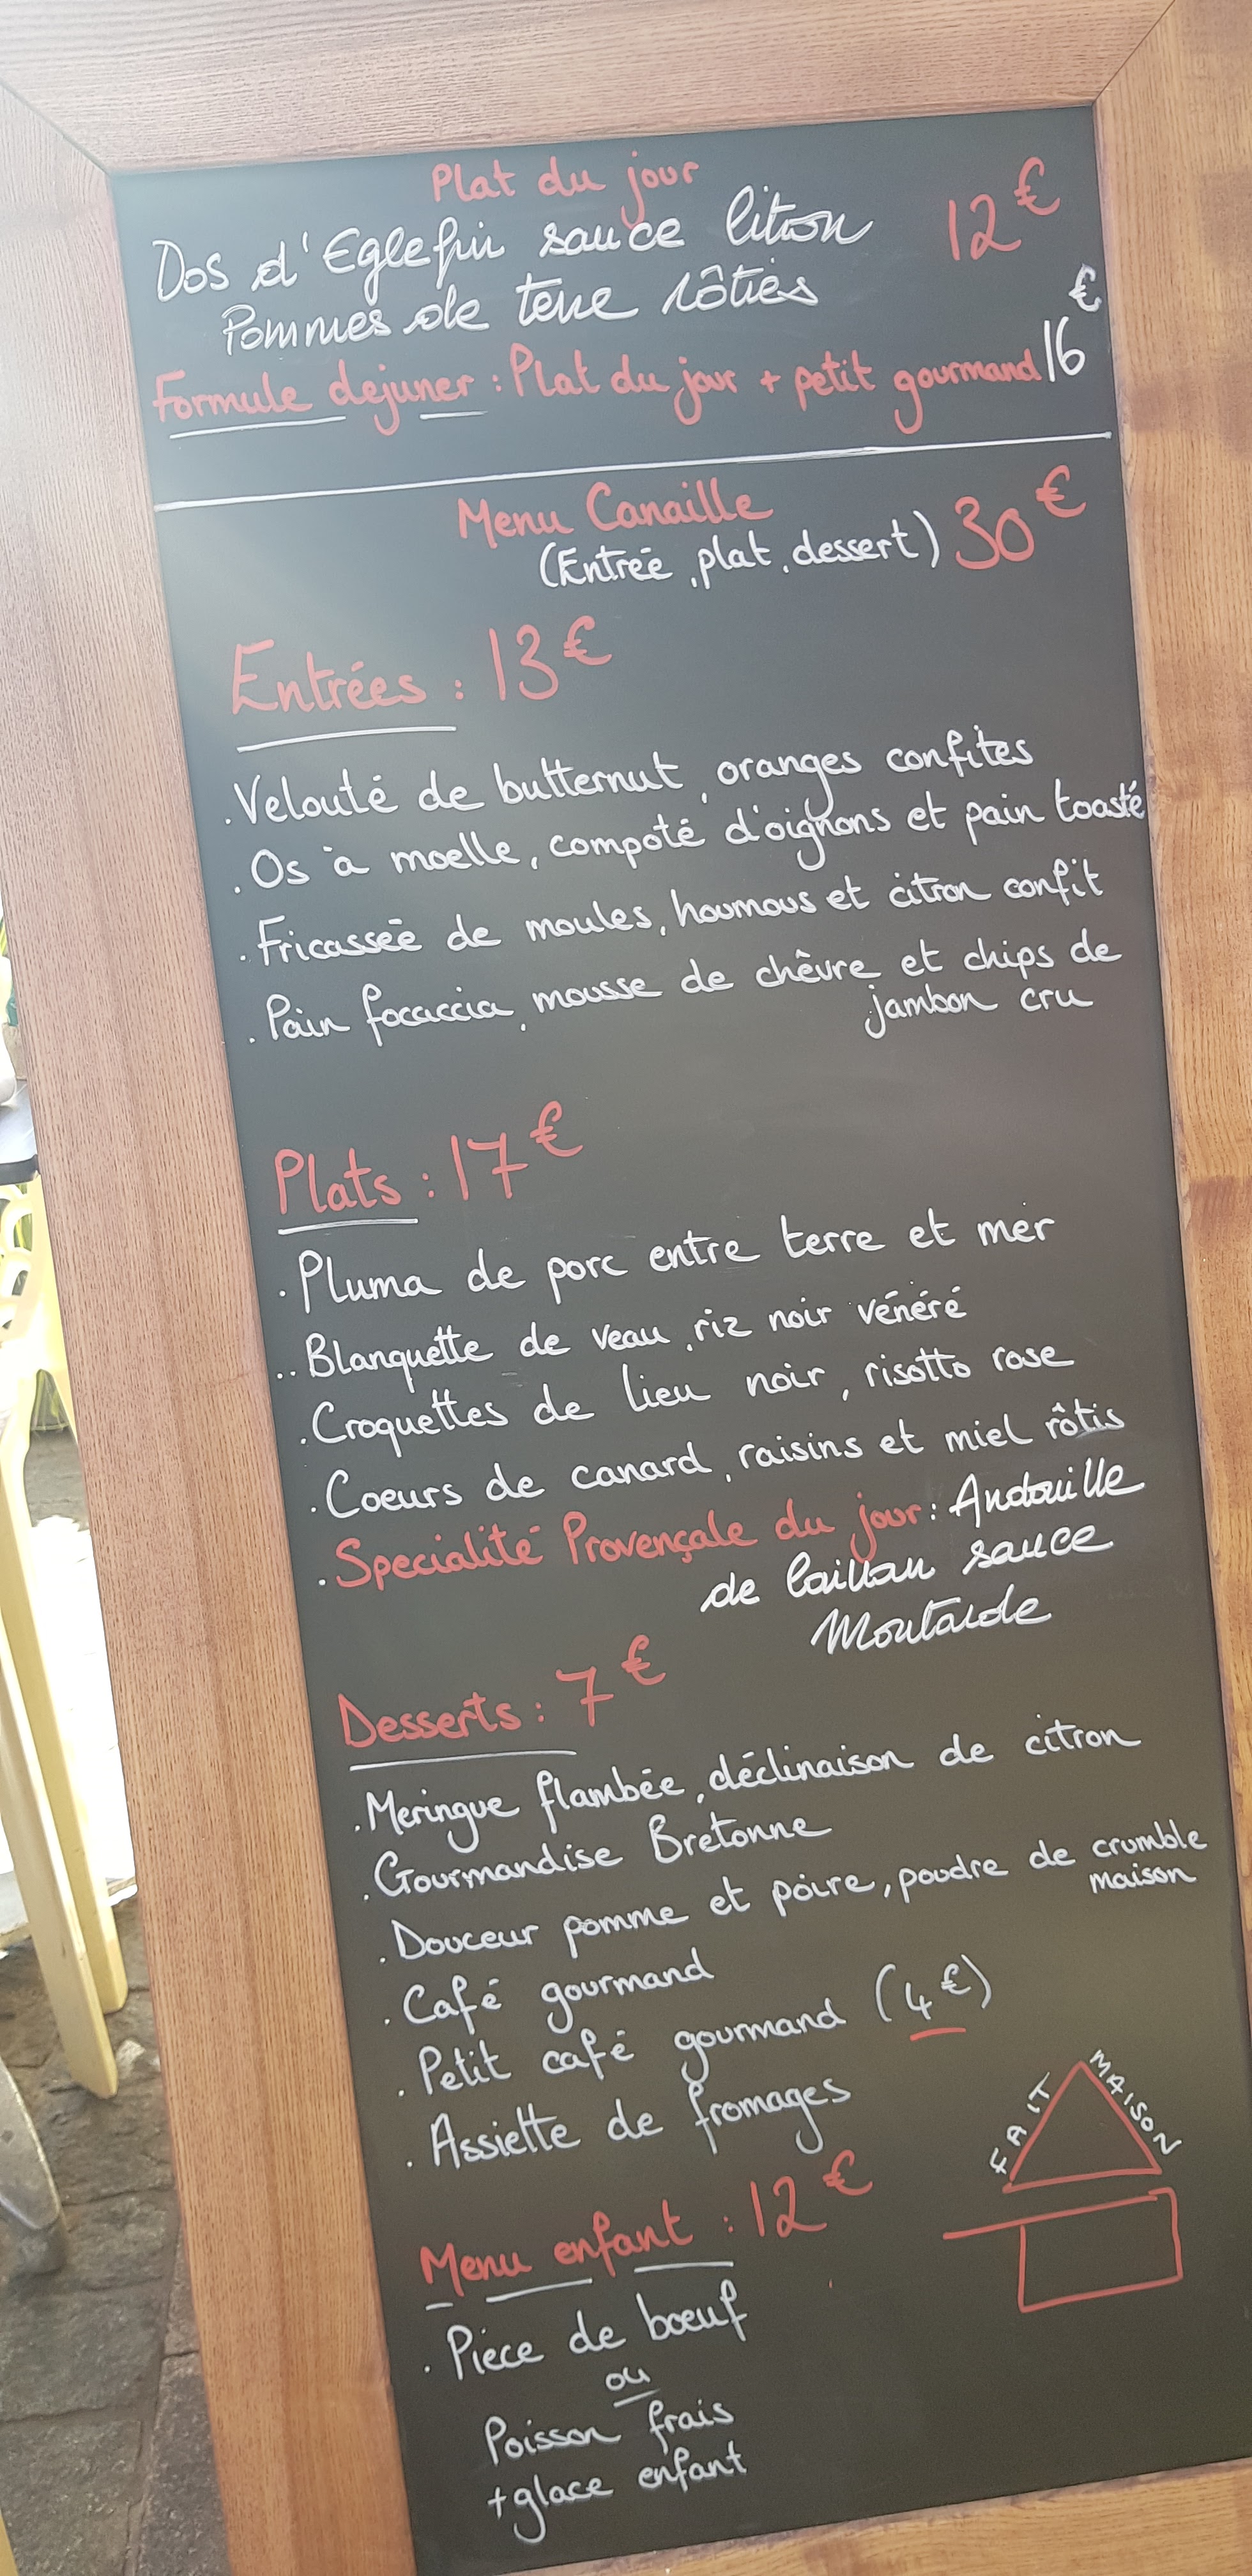 Plat du jour
Dos d'Eglefin sauce Citron 12€
Pommes de terre rôties
Formule dejuner : Plat du jour + petit gourmand 16€
Menu Canaille
(Entrée, plat, dessert) 30€
Entrées : 13€
. Velouté de butternut, oranges confites
. Os à moelle, compoté d'oignons et pain toasté
. Fricassée de moules, houmous et citron confit
. Pain focaccia, mousse de chêvre et chips de
jambon cru
Plats : 17€
. Pluma de porc entre terre et mer
.. Blanquette de veau, riz noir vénéré
. Croquettes de lieu noir, risotto rose
. Coeurs de canard, raisins et miel rôtis
. Specialité Provençale du jour : Andouille
de sauce
Moutarde
Desserts : 7€
. Meringue flambée, déclinaison de citron
. Gourmandise Bretonne
. Douceur pomme et poire, poudre de crumble
maison
. Café gourmand
. Petit café gourmand (4€)
. Assiette de fromages
FAIT MAISON
Menu enfant : 12€
. Pièce de bœuf
ou
Poisson frais
+ glace enfant